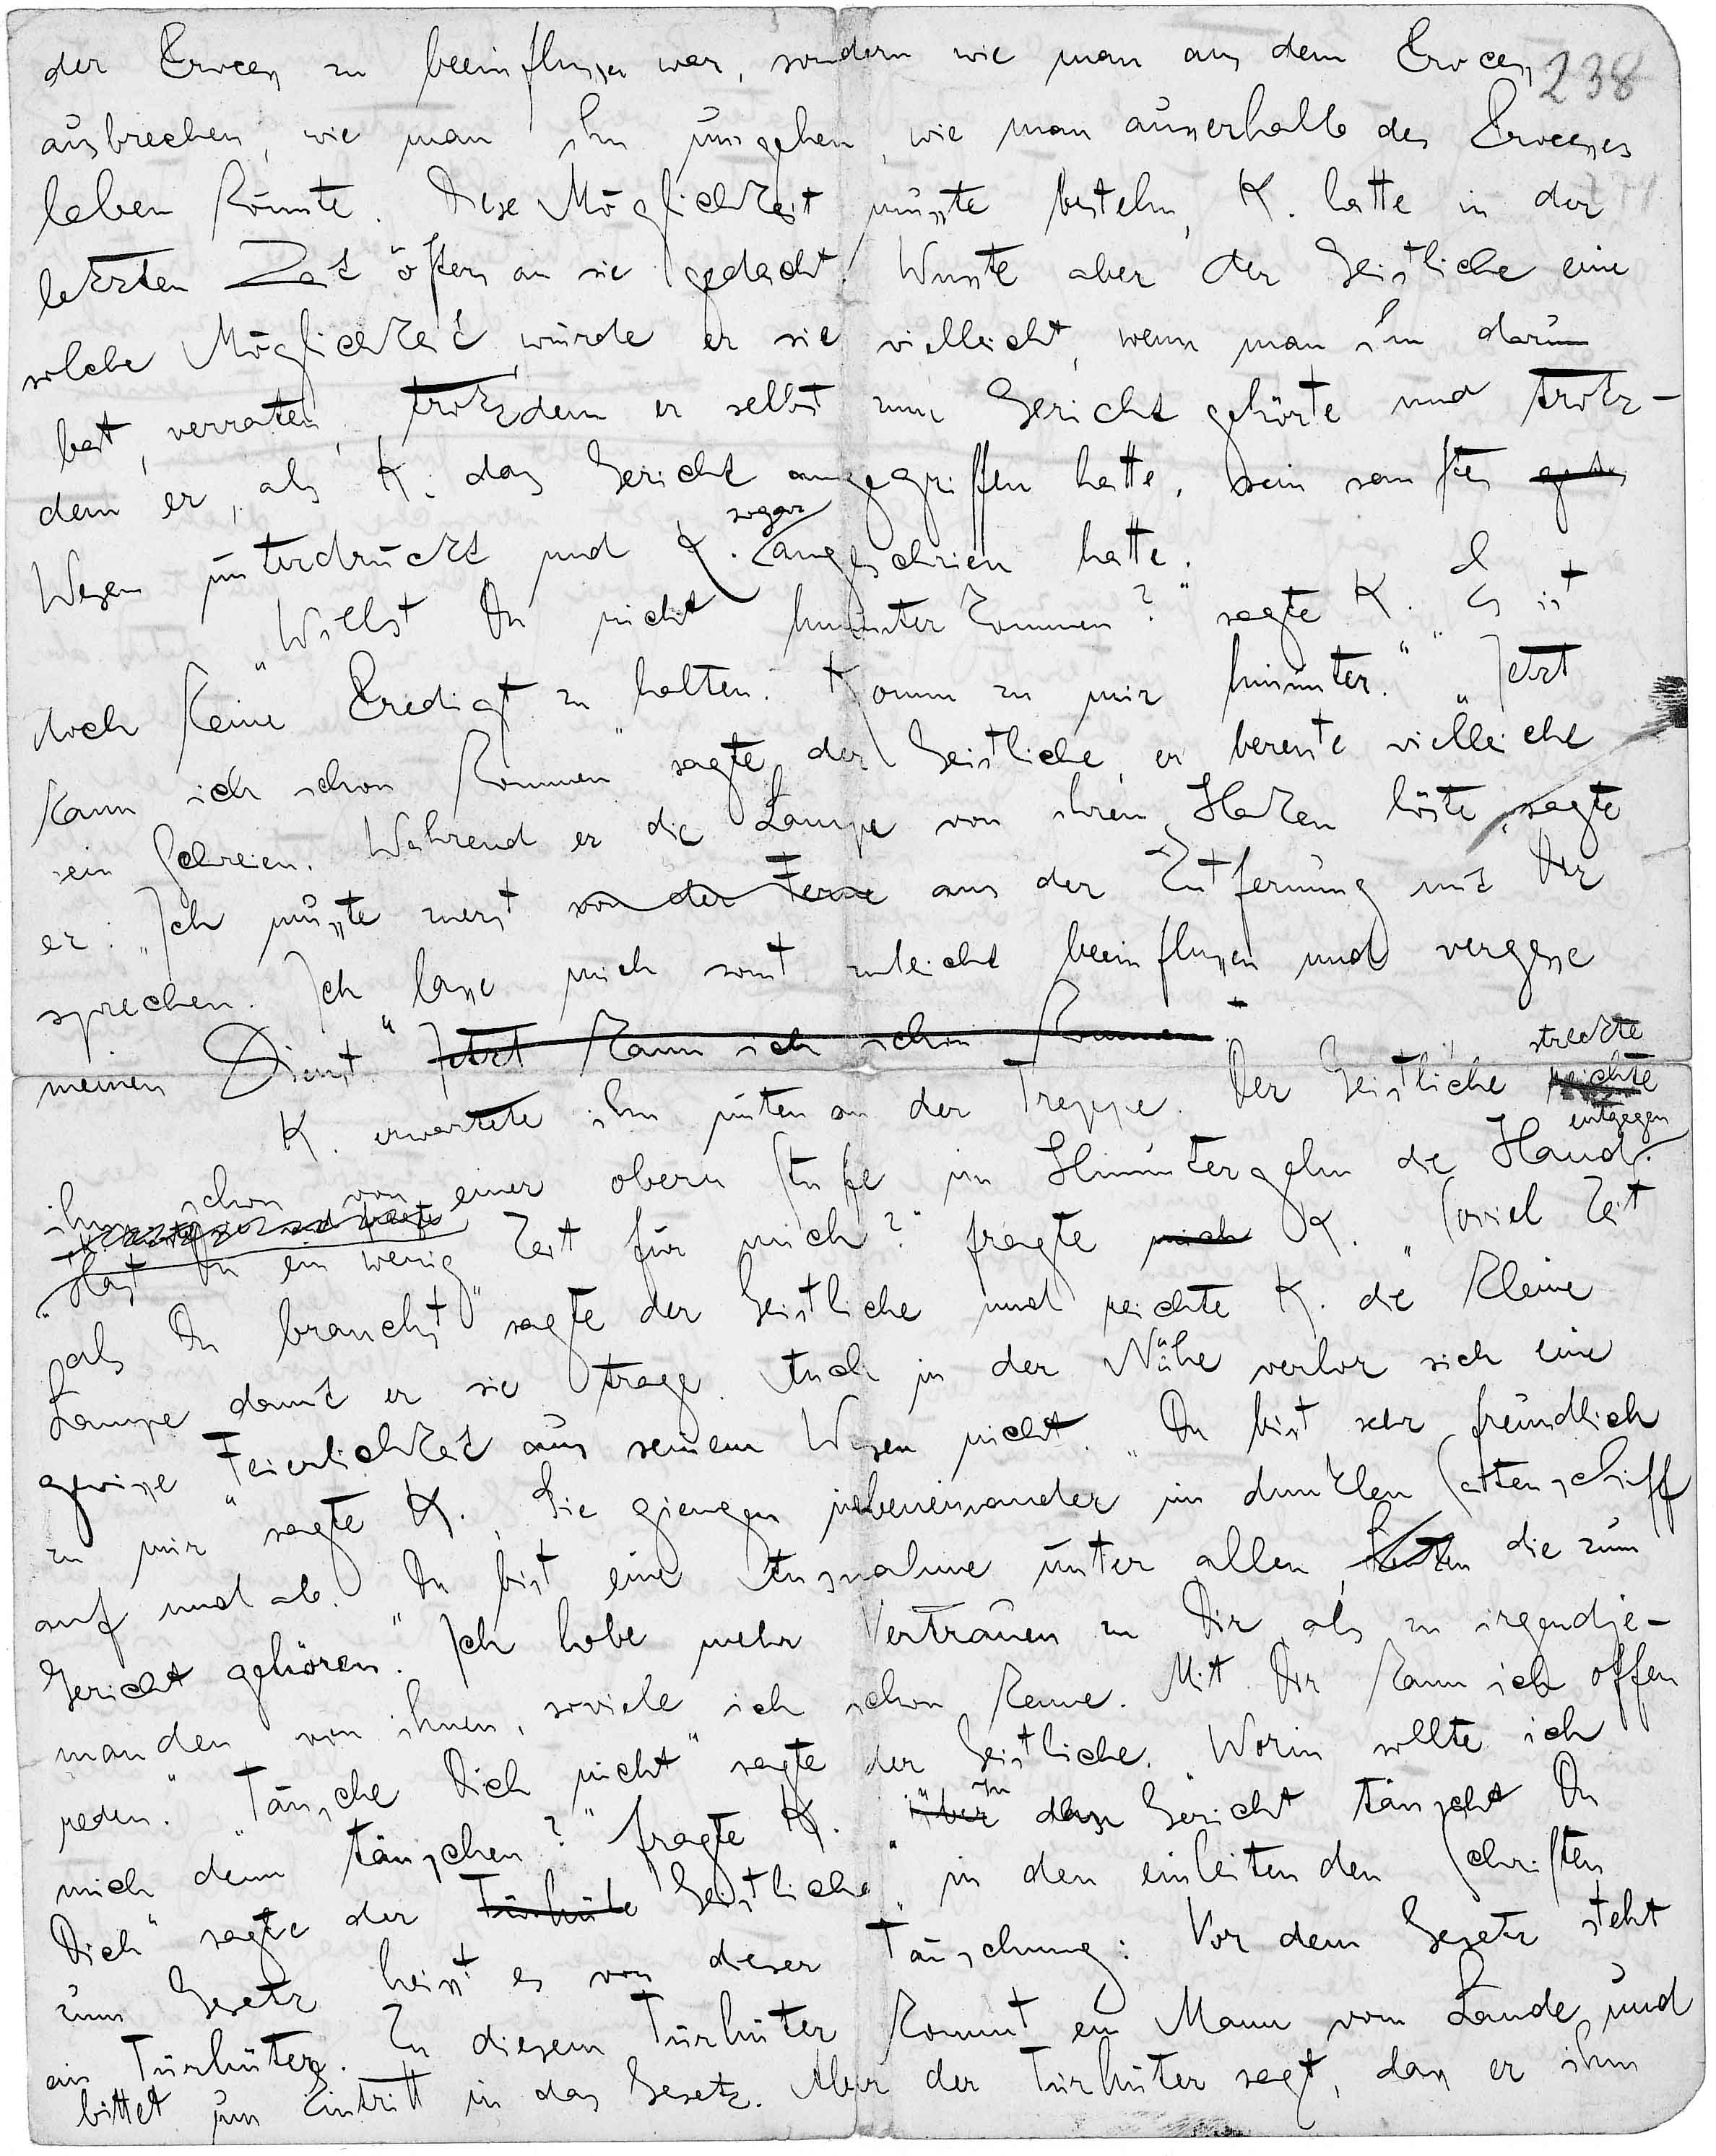 der Process zu beeinflussen war, sondern wie man aus dem Process 238
ausbrechen, wie man ihn umgehen, wie man ausserhalb des Processes
leben könnte. Diese Möglichkeit musste bestehn, K. hatte in der
letzten Zeit öfters an sie gedacht. Wusste aber der Geistliche eine
solche Möglichkeit, würde er sie vielleicht, wenn man ihn darum
bat, verraten, trotzdem er selbst zum Gericht gehörte und trotz-
dem er, als K. das Gericht angegriffen hatte, sein sanftes
Wesen unterdrückt und K. sogar angeschrien hatte.
„Willst Du nicht hinunterkommen?" sagte K. „Es ist
doch keine Predigt zu halten. Komm zu mir hinunter." „Jetzt
kann ich schon kommen" sagte der Geistliche, er bereute vielleicht
sein Schreien. Während er die Lampe von ihrem Haken löste, sagte
er: „Ich musste zuerst von der Ferne aus der Entfernung mit Dir
sprechen. Ich lasse mich sonst zuleicht beeinflussen und vergesse
meinen Dienst." Jetzt kann ich schon kommen
K. erwartete ihn unten an der Treppe. Der Geistliche reichte streckte
ihm schon von einer obern Stufe im Hinuntergehn die Hand entgegen.
„Hast Du ein wenig Zeit für mich?" fragte mich K. „Soviel Zeit
als Du brauchst" sagte der Geistliche und reichte K. die kleine
Lampe damit er sie trage. Auch in der Nähe verlor sich eine
gewisse Feierlichkeit aus seinem Wesen nicht. „Du bist sehr freundlich
zu mir" sagte K. Sie giengen nebeneinander im dunklen Seitenschiff
auf und ab. „Du bist eine Ausnahme unter allen, die zum
Gericht gehören." Ich habe mehr Vertrauen zu Dir, als zu irgendje-
manden von ihnen, soviele ich schon kenne. Mit Dir kann ich offen
reden." „Täusche Dich nicht" sagte der Geistliche. „Worin sollte ich
mich denn täuschen?" fragte K. „über In dem Gericht täuscht Du
Dich" sagte der Türhüte Geistliche, „in den einleitenden Schriften
zum Gesetz heisst es von dieser Täuschung: Vor dem Gesetz steht
ein Türhüter. Zu diesem Türhüter kommt ein Mann vom Lande und
bittet um Eintritt in das Gesetz. Aber der Türhüter sagt, dass er ihm